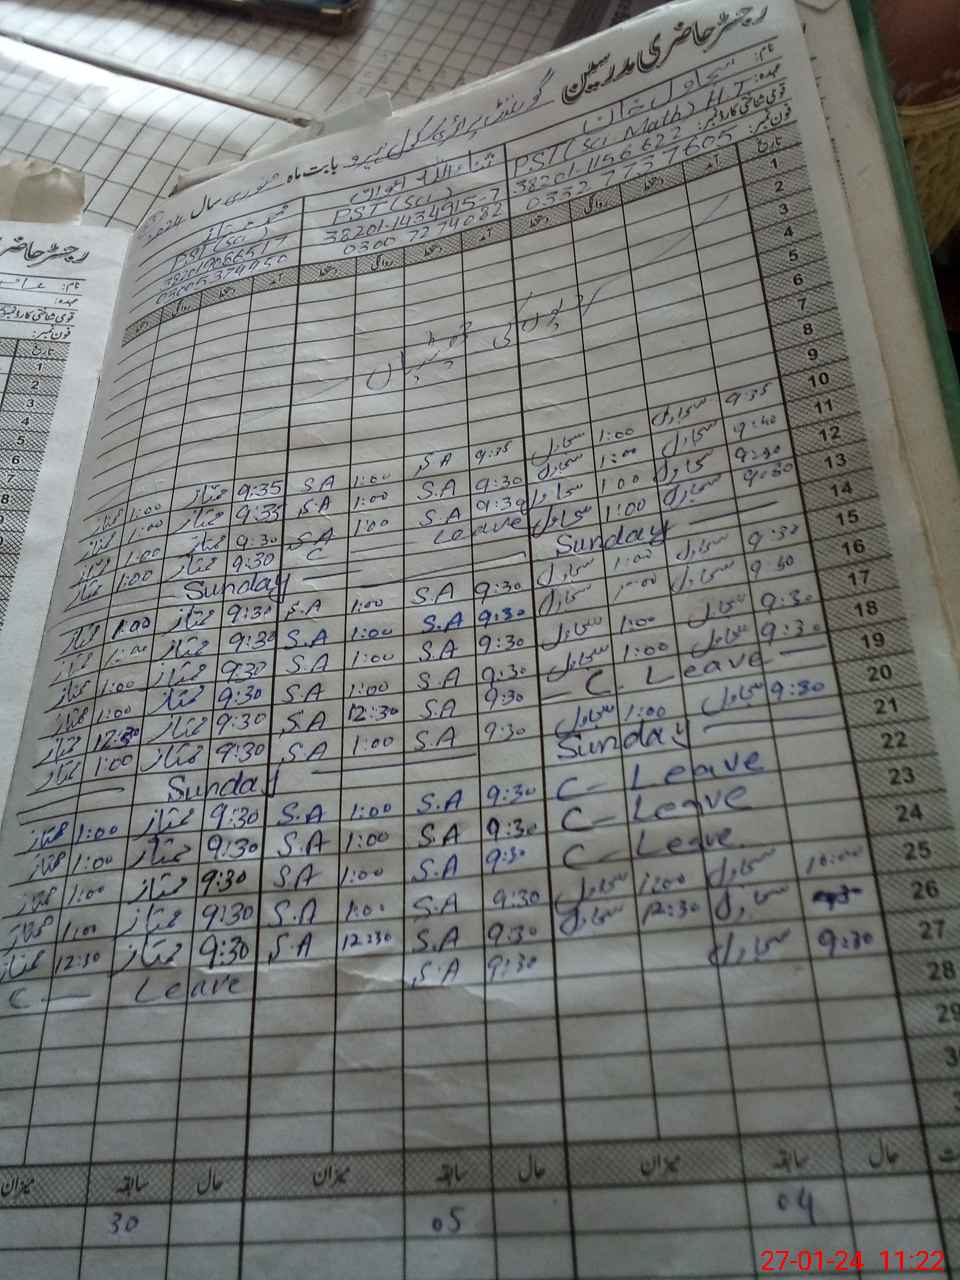 رجسٹر حاضری مدرسین
گورنمنٹ پرائمری سکول بابت ماہ جنوری سال 2024
نام:
عہدہ: PST (Sci Math) H.T PST (Sci) PST (Sci)
قومی شناختی کارڈ نمبر: 38201-1434915-7
فون نمبر: 0332 7737605 0300 7274082
تاریخ آمد دستخط روانگی دستخط آمد دستخط روانگی دستخط آمد دستخط روانگی دستخط
1
2
3
4
5
6
7
8
9
10 9:35 سجاول 1:00 سجاول 9:35 S.A 1:00 S.A 9:35 ممتاز 1:00 ممتاز
11 9:40 سجاول 1:00 سجاول 9:30 S.A 1:00 S.A 9:35 ممتاز 1:00 ممتاز
12 9:30 سجاول 1:00 سجاول 9:30 S.A 1:00 S.A 9:30 ممتاز 1:00 ممتاز
13 9:30 سجاول 1:00 سجاول C Leave 9:30 ممتاز 1:00 ممتاز
14 Sunday Sunday
15 9:30 سجاول 1:00 سجاول 9:30 S.A 1:00 S.A 9:30 ممتاز 1:00 ممتاز
16 9:30 سجاول 1:00 سجاول 9:30 S.A 1:00 S.A 9:30 ممتاز 1:00 ممتاز
17 9:30 سجاول 1:00 سجاول 9:30 S.A 1:00 S.A 9:30 ممتاز 1:00 ممتاز
18 9:30 سجاول 1:00 سجاول 9:30 S.A 1:00 S.A 9:30 ممتاز 1:00 ممتاز
19 C. Leave 9:30 S.A 12:30 S.A 9:30 ممتاز 12:30 ممتاز
20 9:30 سجاول 1:00 سجاول 9:30 S.A 1:00 S.A 9:30 ممتاز 1:00 ممتاز
21 Sunday Sunday
22 C- Leave 9:30 S.A 1:00 S.A 9:30 ممتاز 1:00 ممتاز
23 C- Leave 9:30 S.A 1:00 S.A 9:30 ممتاز 1:00 ممتاز
24 C- Leave 9:30 S.A 1:00 S.A 9:30 ممتاز 1:00 ممتاز
25 10:00 سجاول 1:00 سجاول 9:30 S.A 1:00 S.A 9:30 ممتاز 1:00 ممتاز
26 سجاول 12:30 سجاول 9:30 S.A 12:30 S.A 9:30 ممتاز 12:30 ممتاز
27 9:30 سجاول 9:30 S.A C- Leave
28
29
حال سابقہ میزان حال سابقہ میزان حال سابقہ میزان
04 05 30
رجسٹر حاضری
نام:
عہدہ:
فون نمبر:
تاریخ
1
2
3
4
5
6
7
8
27-01-24 11:22